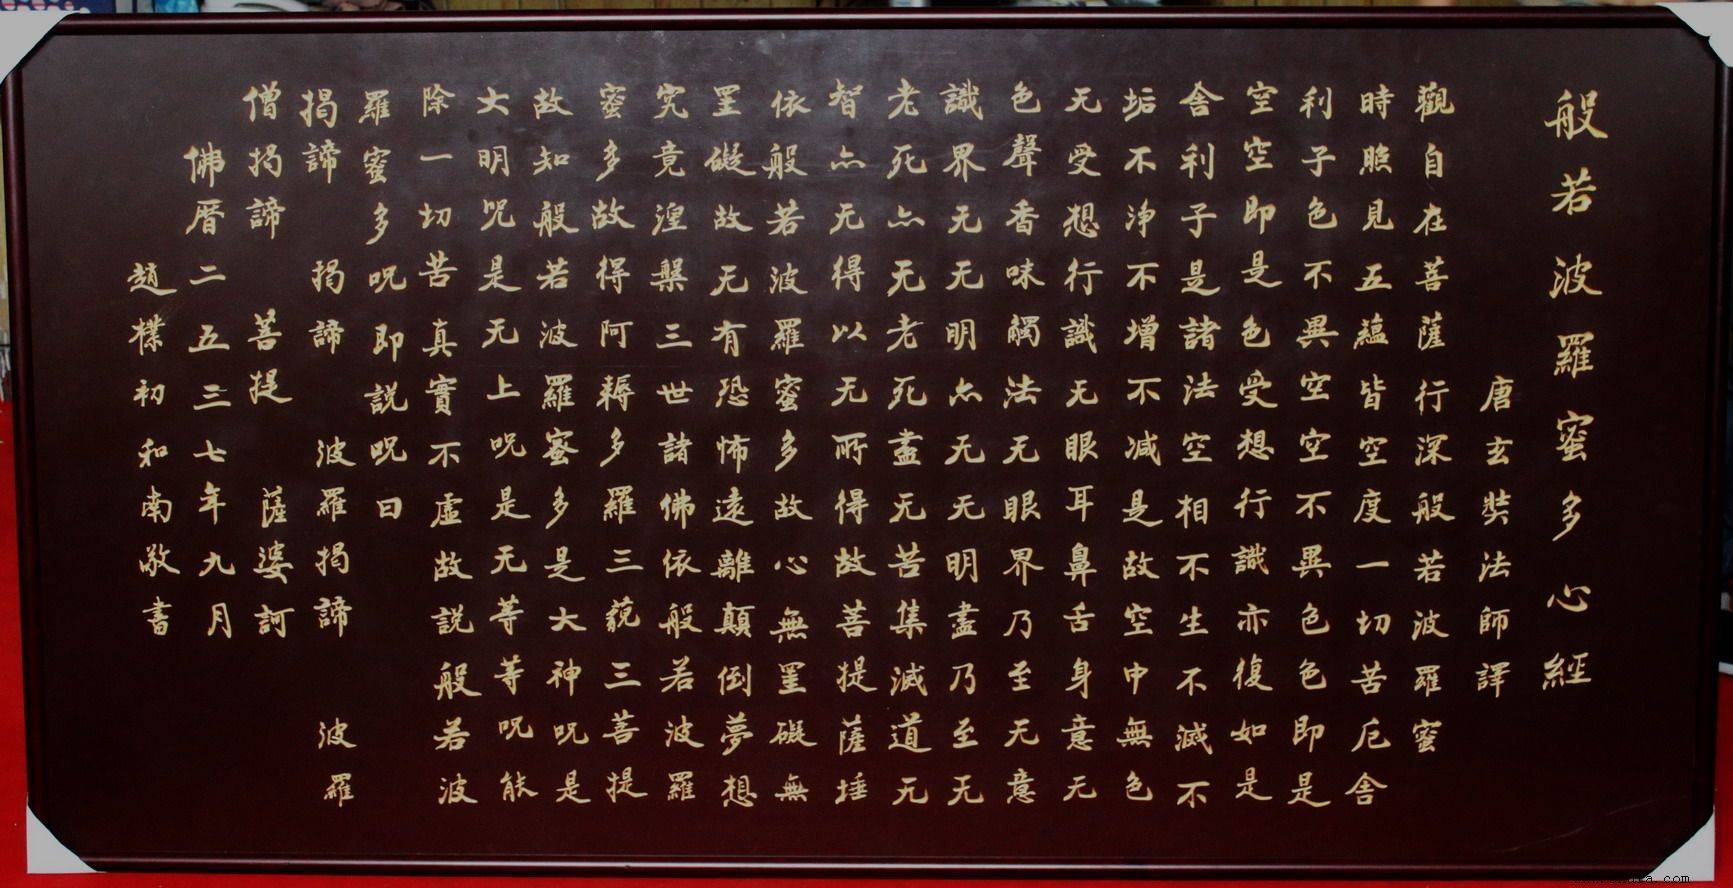 般若波羅蜜多心經
唐玄奘法師譯
觀自在菩薩行深般若波羅蜜
時照見五蘊皆空度一切苦厄舍
利子色不異空空不異色色即是
空空即是色受想行識亦復如是
舍利子是諸法空相不生不滅不
垢不淨不增不减是故空中無色
无受想行識无眼耳鼻舌身意无
色聲香味觸法无眼界乃至无意
識界无无明亦无无明盡乃至无
老死亦无老死盡无苦集滅道无
智亦无得以无所得故菩提薩埵
依般若波羅蜜多故心無罣礙無
罣礙故无有恐怖遠離顛倒夢想
究竟湼槃三世諸佛依般若波羅
蜜多故得阿耨多羅三藐三菩提
故知般若波羅蜜多是大神呪是
大明呪是无上呪是无等等呪能
除一切苦真實不虛故説般若波
羅蜜多呪即説呪曰
揭諦 揭諦 波羅揭諦 波羅
僧揭諦 菩提 薩婆訶
佛曆二五三七年九月
趙樸初和南敬書